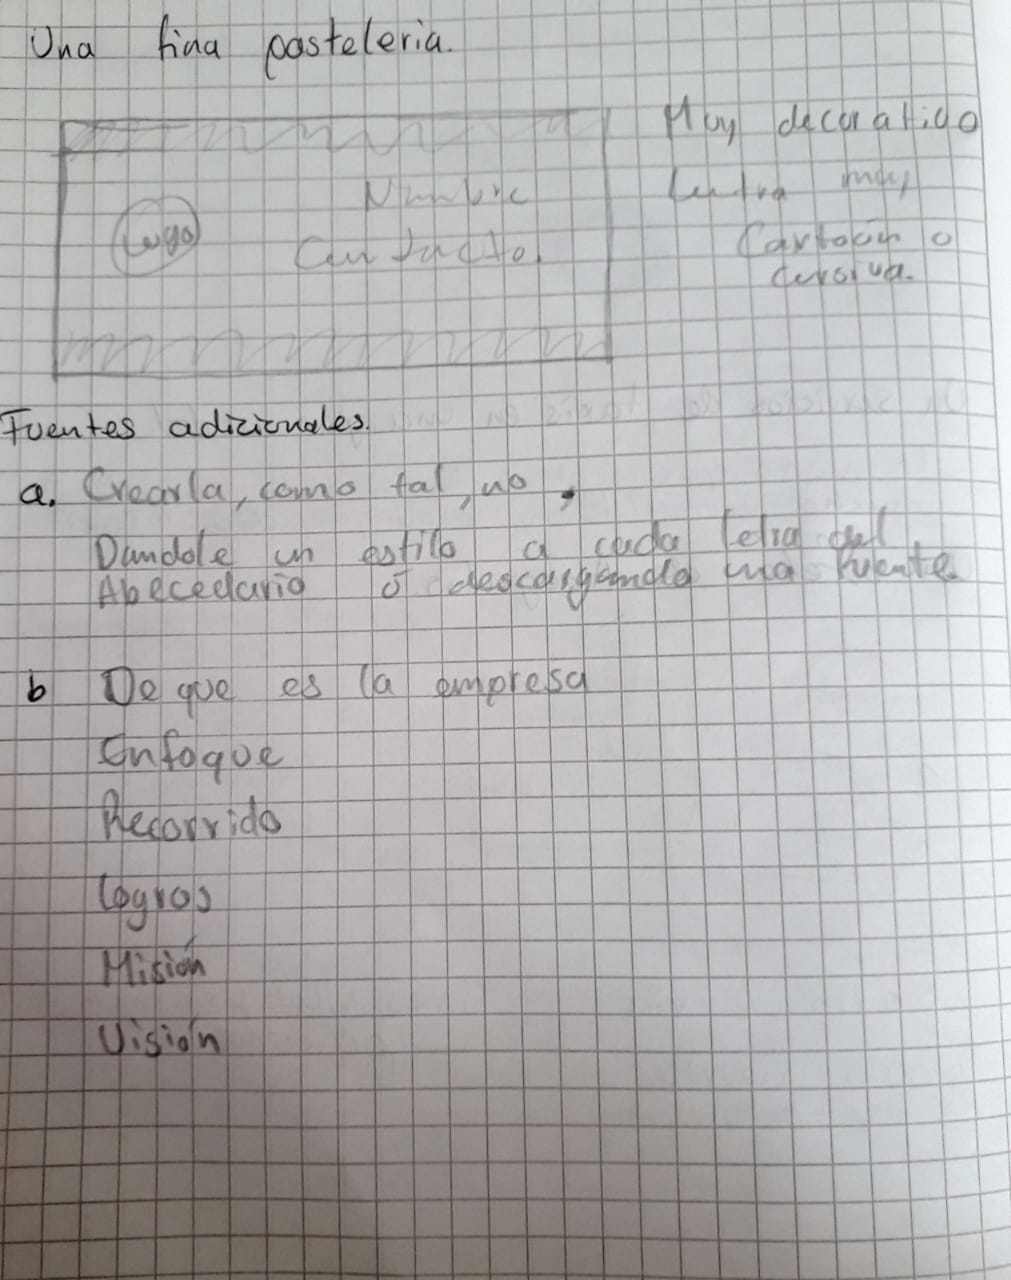 Una fina pasteleria.
Muy decorativo
Nombre
Letra muy
Logo
Contacto
Cartoon o
cursiva.
Fuentes adicionales.
a. Crearla, como tal, no,
Dandole un estilo a cada letra del
Abecedario o descargando una fuente
b De que es la empresa
Enfoque
Recorrido
Logros
Misión
Visión